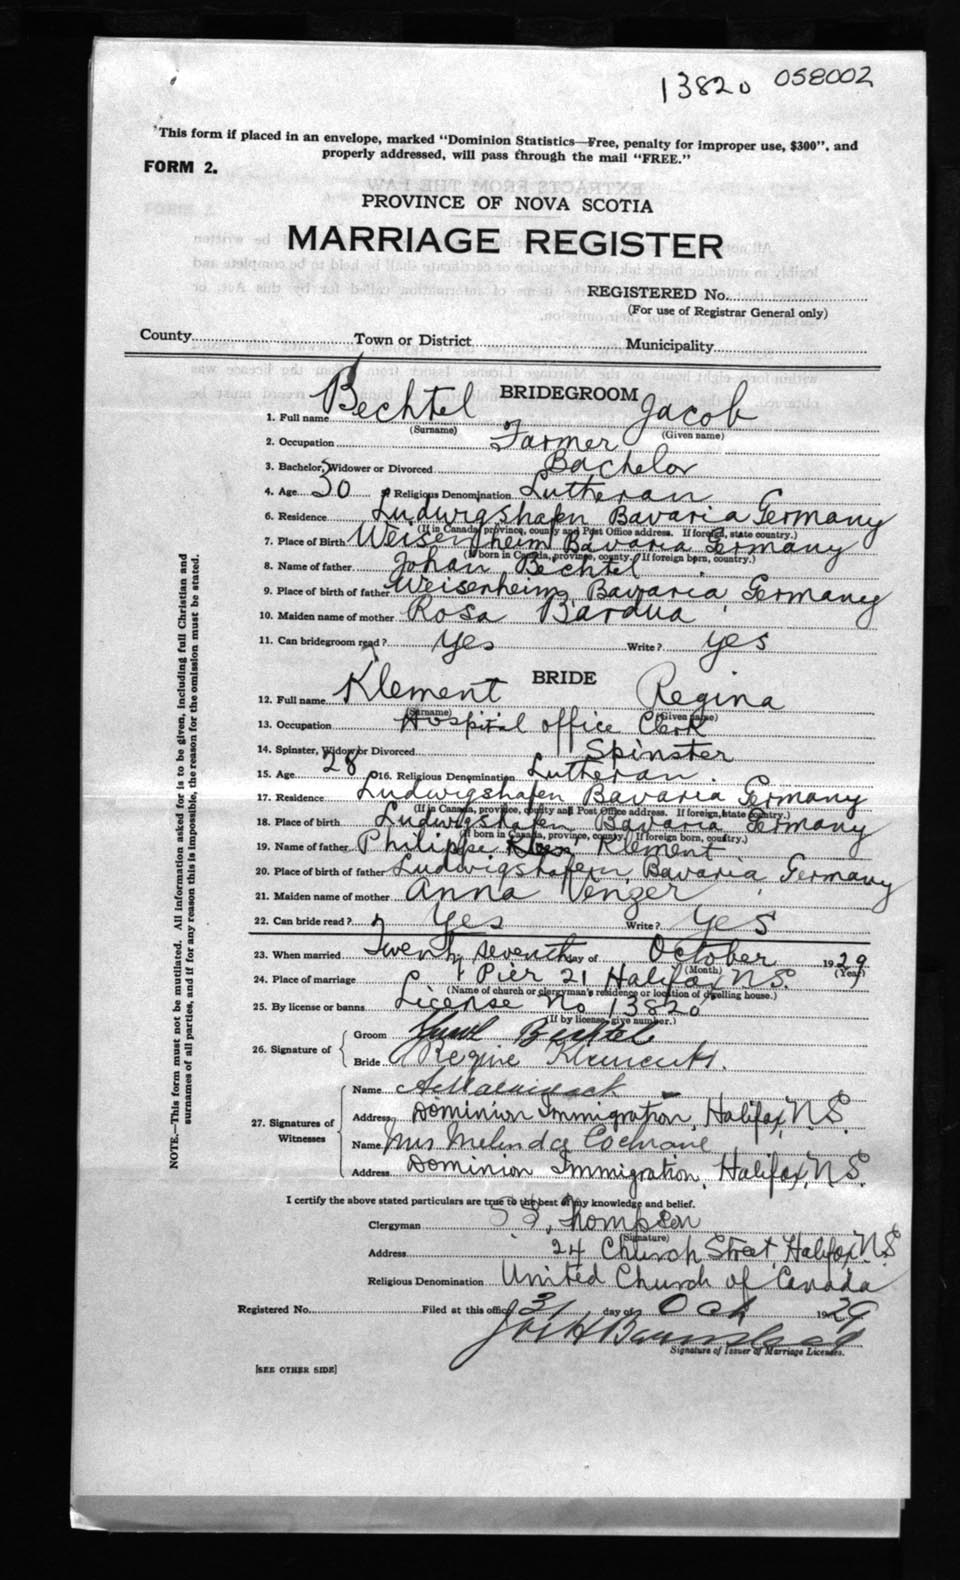 13820 058002
"This form if placed in an envelope, marked "Dominion Statistics—Free, penalty for improper use, $300", and
properly addressed, will pass through the mail "FREE."
FORM 2.
PROVINCE OF NOVA SCOTIA
MARRIAGE REGISTER
REGISTERED No.
(For use of Registrar General only)
County Town or District Municipality
BRIDEGROOM
1. Full name Bechtel Jacob
(Surname) (Given name)
2. Occupation Farmer
3. Bachelor, Widower or Divorced Bachelor
4. Age 30 Religious Denomination Lutheran
6. Residence Ludwigshafen Bavaria Germany
(If in Canada, province, county and Post Office address. If foreign, state country.)
7. Place of Birth Weisenheim Bavaria Germany
(If born in Canada, province, county. If foreign born, country.)
8. Name of father Johan Bechtel
9. Place of birth of father Weisenheim, Bavaria Germany
10. Maiden name of mother Rosa Bardua
11. Can bridegroom read? Yes Write? yes
BRIDE
12. Full name Klement Regina
(Surname) (Given name)
13. Occupation Hospital office Clerk
14. Spinster, Widow or Divorced Spinster
15. Age 28 16. Religious Denomination Lutheran.
17. Residence Ludwigshafen Bavaria Germany
(If in Canada, province, county and Post Office address. If foreign, state country.)
18. Place of birth Ludwigshafen Bavaria Germany
(If born in Canada, province, county. If foreign born, country.)
19. Name of father Philippe Klement
20. Place of birth of father Ludwigshafen, Bavaria, Germany
21. Maiden name of mother Anna Venger
22. Can bride read? Yes Write? Yes
23. When married Twenty seventh day of October 1929
(Month) (Year)
24. Place of marriage Pier 21 Halifax N.S.
(Name of church or clergyman's residence or location of dwelling house.)
25. By license or banns License No 13820
(If by license, give number.)
26. Signature of Groom Bechtel
Bride Regine
27. Signatures of Witnesses Name
Address Dominion Immigration, Halifax, N.S.
Name Mrs Melinda Cochrane
Address Dominion Immigration, Halifax, N.S.
I certify the above stated particulars are true to the best of my knowledge and belief.
Clergyman Thompson
(Signature)
Address 24 Church Street, Halifax N.S
Religious Denomination United Church of Canada
Registered No. Filed at this office 31 day of Oct 1929
Signature of Issuer of Marriage Licenses.
[SEE OTHER SIDE]
NOTE.—This form must not be mutilated. All information asked for is to be given, including full Christian and
surnames of all parties, and if for any reason this is impossible, the reason for the omission must be stated.